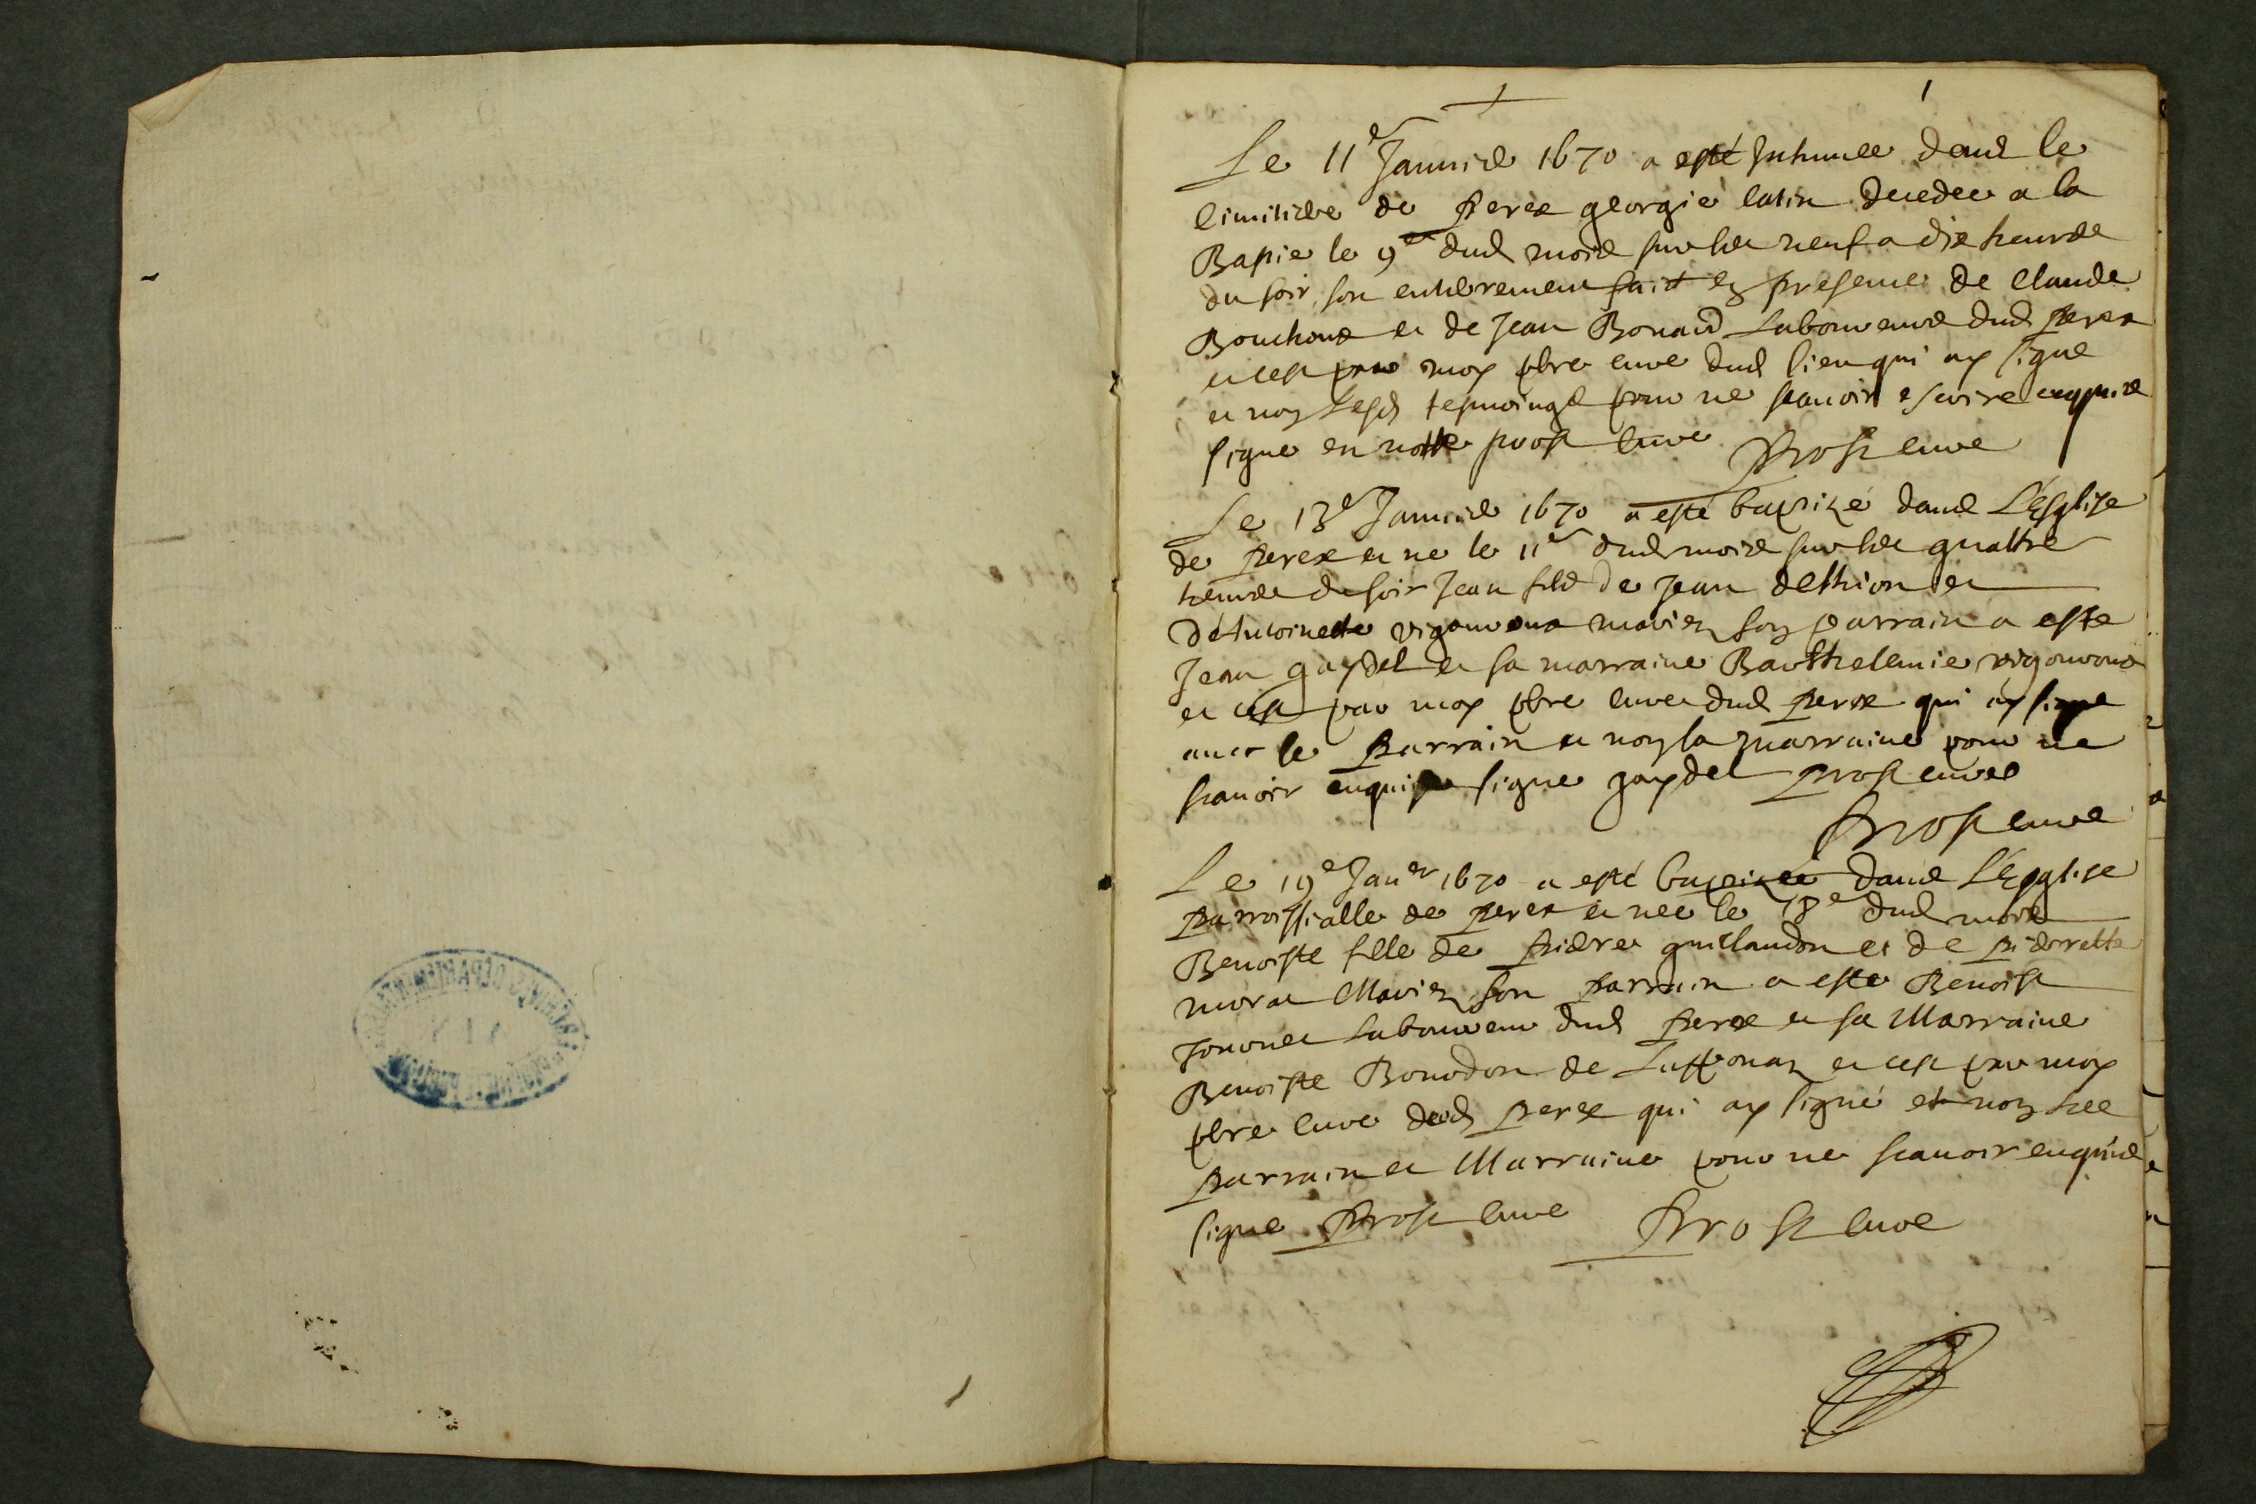 1
Le 11e Janvier 1670 a esté Inhumee dans le
cimitiere de perex georgie latin decedee a la
Bapie le 9e dud mois sur les neuf a dix heures
du soir son enterrement fait en presence de claude
Bouchoux et de Jean Bonard Laboureurs dud perex
et cest par moy pbre cure dud lieu qui ay signe
et non lesd tesmoings pour ne scavoir escrire enquis
signe en notte prost cure Prost cure
Le 13e Janvier 1670 a esté baptizé dans L'Esglise
de perex et ne le 11e dud mois sur les quattre
heures du soir Jean fils de Jean dethion et
d'Antoinette vigouroux mariez son parrain a este
Jean gaydel et sa marraine Barthelemie vigouroux
et cest par moy pbre cure dud perex qui ay signe
avec le Parrain et non la marraine pour ne
scavoir enquise signe gaydel prost cure
Prost cure
Le 19e Janer 1670 a esté baptizée dans L'Esglise
parroissialle de perex et nee le 18e dud mois
Benoiste fille de pierre guillaudon et de pierrette
morat Mariez son parrain a este Benoist
Laboureur dud perex et sa Marraine
Benoiste Bourdon de et cest par moy
pbre cure dud perex qui ay signé et non les
parrain et Marraine pour ne scavoir enquis
signe Prost cure Prost cure